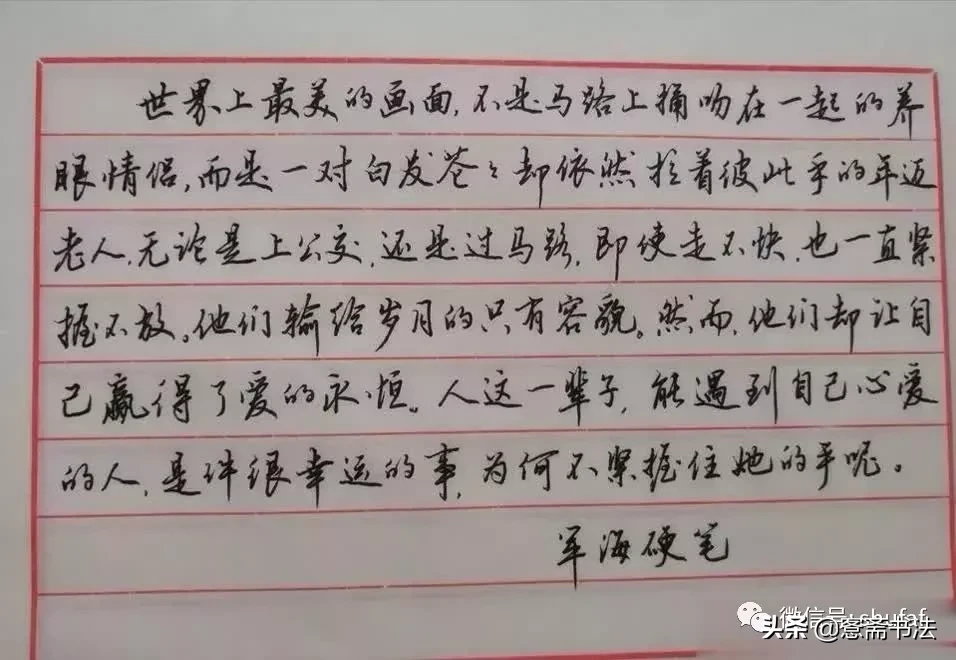 世界上最美的画面,不是马路上拥吻在一起的养
眼情侣,而是一对白发苍々却依然拉着彼此手的年迈
老人,无论是上公交,还是过马路,即使走不快,也一直紧
握不放。他们输给岁月的只有容貌。然而,他们却让自
己赢得了爱的永恒。人这一辈子,能遇到自己心爱
的人,是件很幸运的事,为何不紧握住她的手呢。
军海硬笔
微信号: shufaf
头条@意斋书法